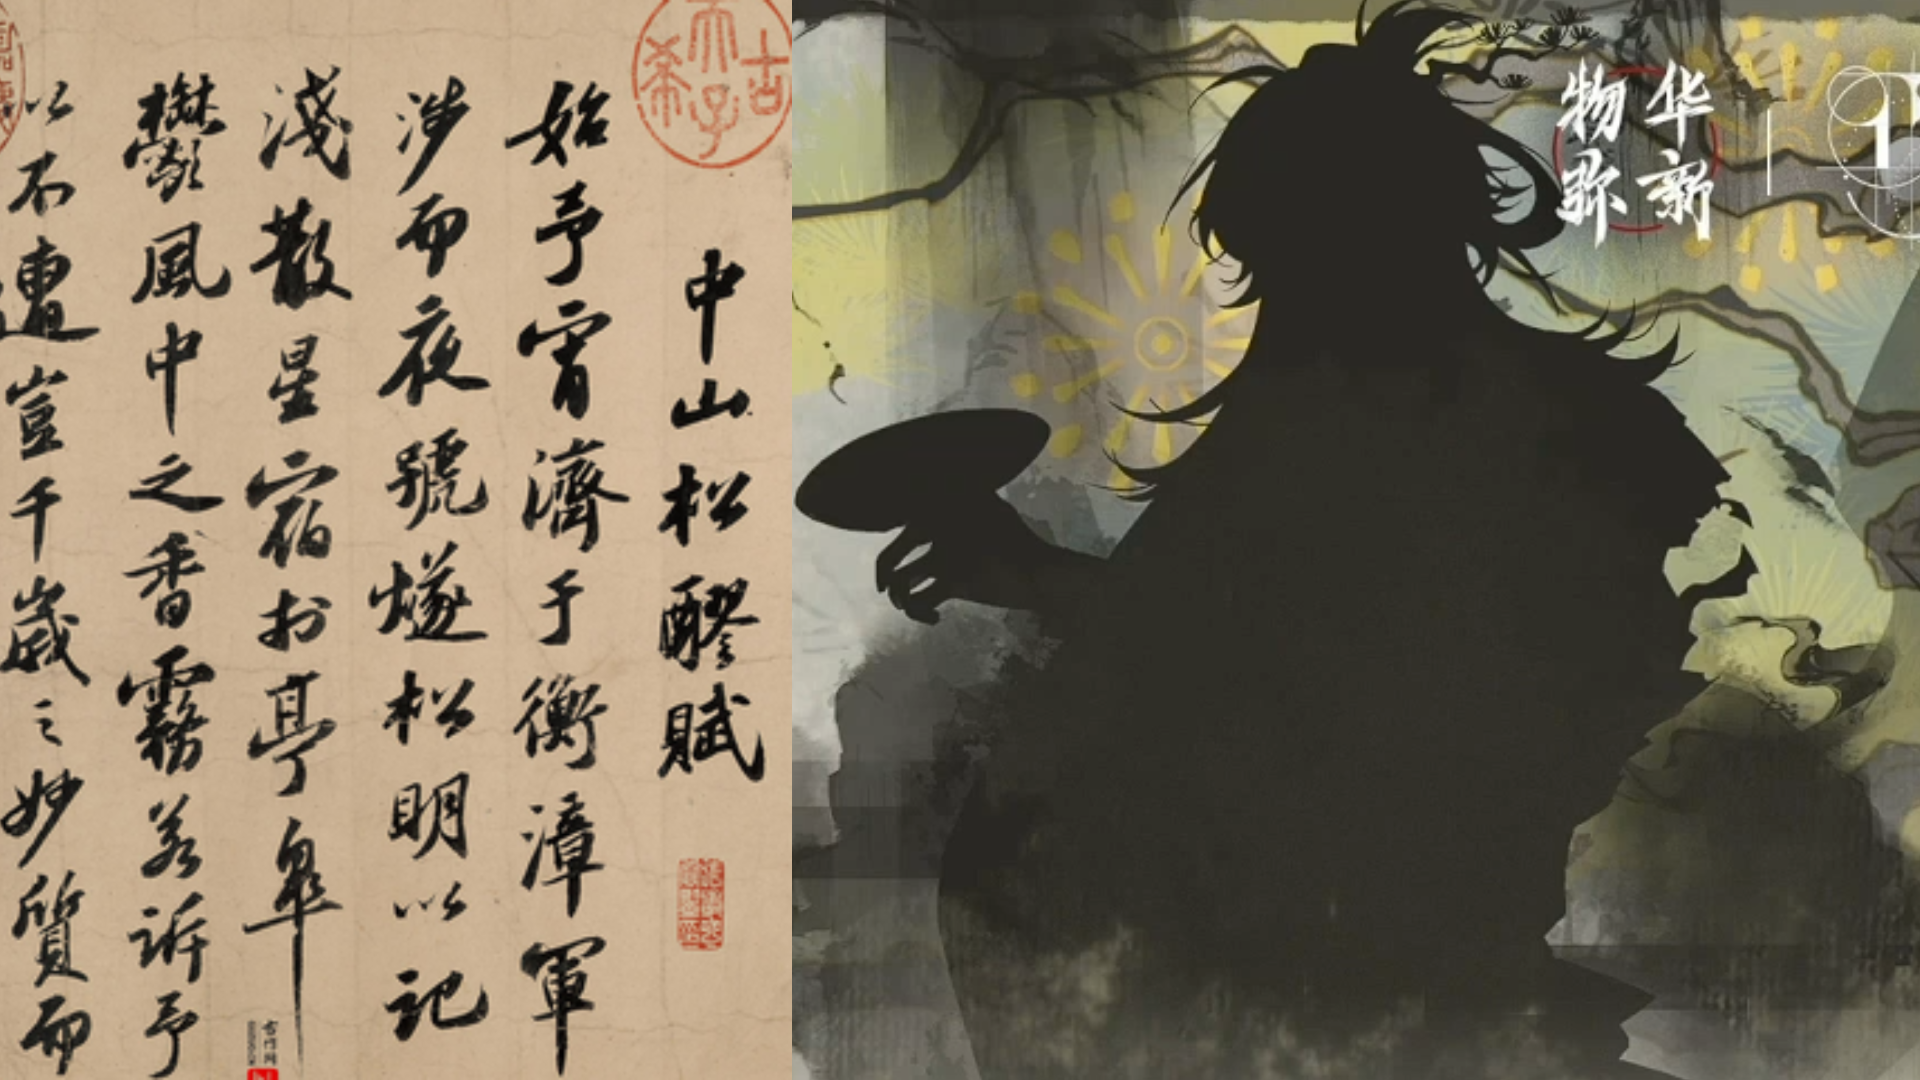 中山松醪賦
始予宵濟于衡漳軍
涉而夜號燧松明以記
淺散星宿於亭皋
鬱風中之香霧若訴予
以不遭豈千歲之妙質而
古希天子
华新
物弥